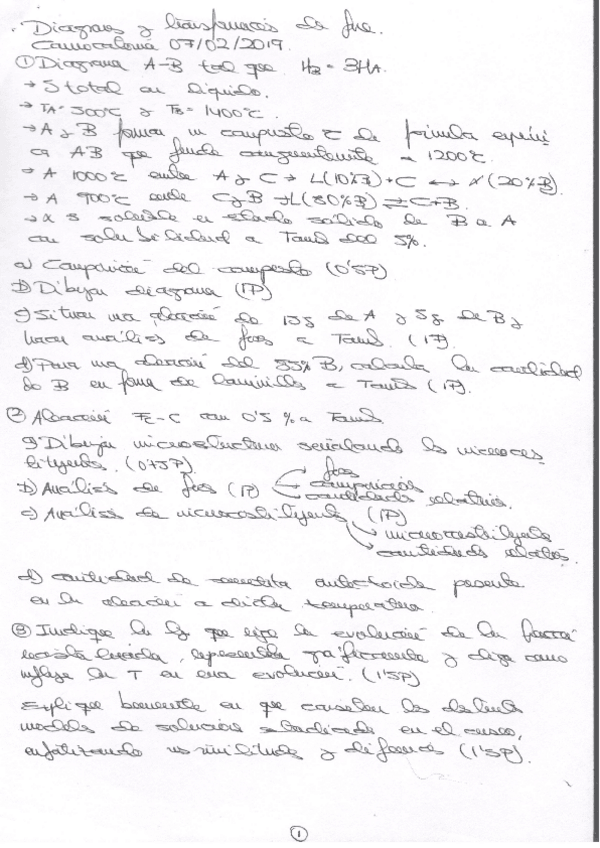 Diagramas y transformaciones de fase.
Convocatoria 07/02/2019.
① Diagrama A-B tal que MB = 3MA.
→ S total en líquido.
→ TA = 500°C y TB = 1400°C.
→ A y B forman un compuesto C de fórmula empíri
ca AB que funde congruentemente a 1200°C.
→ A 1000°C entre A y C → L(10%B) + C ↔ α(20%B).
→ A 900°C entre C y B → L(80%B) ⇌ C+B.
→ solubilidad en estado sólido de B a A
con solubilidad a Tamb del 5%.
a) Composición del compuesto (0'5P)
b) Dibujar diagrama (1P)
c) Situar una aleación de 15g de A y 5g de B y
hacer análisis de fases a Tamb. (1P)
d) Para una aleación del 55% B, calcula la cantidad
de B en forma de laminillas a Tamb (1P).
② Aleación Fe-C con 0'5 % a Tamb
a) Dibujar microestructura señalando los microcons
tituyentes. (0'75P)
b) Análisis de fases (1P) fases composición cantidades relativas.
c) Análisis de microconstituyentes (1P)
microconstituyente
cantidades relativas.
d) cantidad de cementita eutectoide presente
en la aleación a dicha temperatura
③ Indique la ley que rige la evolución de la fracción
recristalizada, represente gráficamente y diga como
influye la T en esa evolución. (1'5P)
Explique brevemente en que consisten los distintos
modelos de solución estudiados en el curso,
enfatizando similitudes y diferencias (1'5P).
1